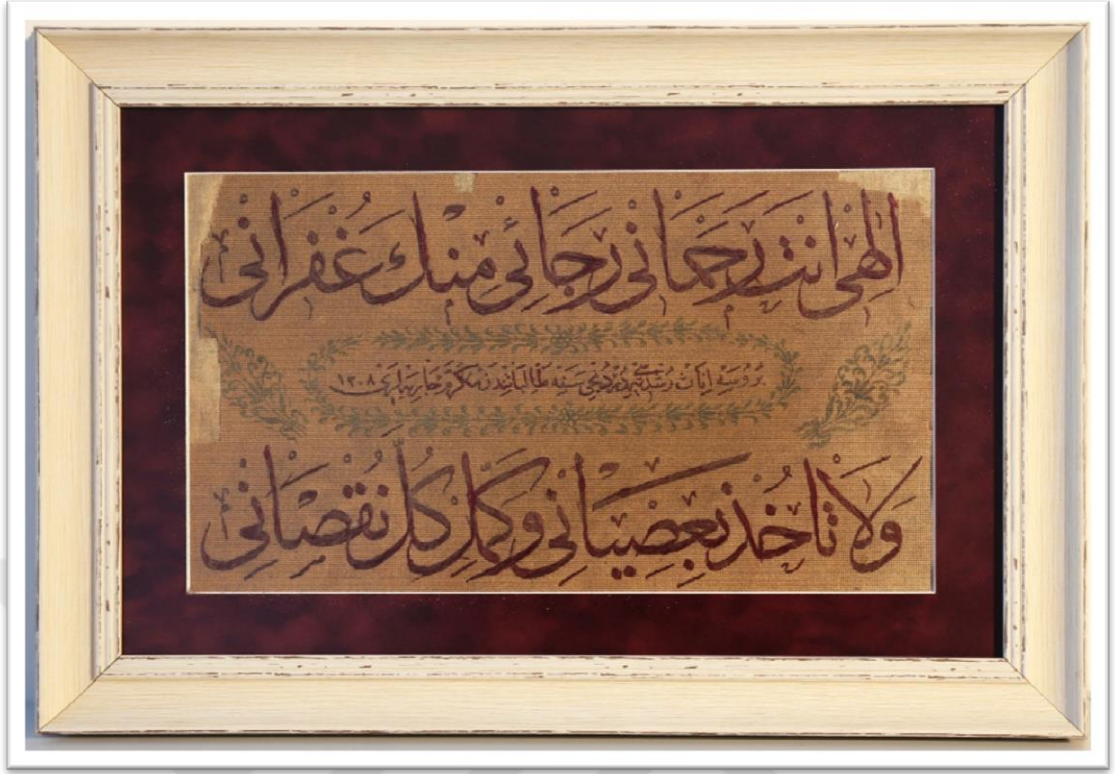 الهى انت رحمانى رجائى منك غفرانى
بروسه اناث رشديه سى دردنجى سنه طالباتندن ١٣٠٨
ولا تاخذ بعصيانى وكمل كل نقصانى